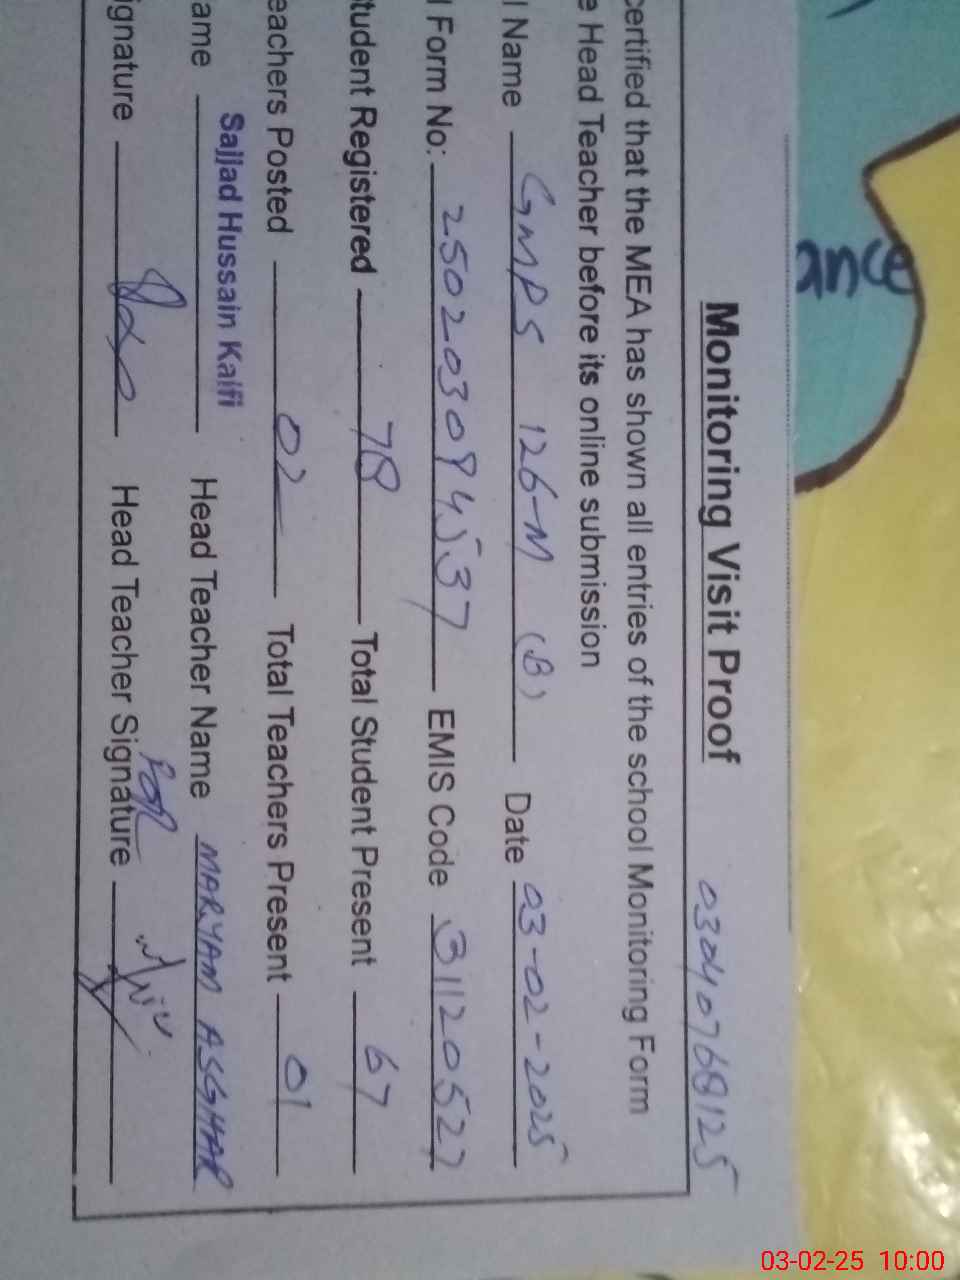 Monitoring Visit Proof 03040768125
certified that the MEA has shown all entries of the school Monitoring Form
e Head Teacher before its online submission
l Name GMPS 126-M (B) Date 03-02-2025
l Form No: 2502030894537 EMIS Code 31120527
tudent Registered 78 Total Student Present 67
eachers Posted 02 Total Teachers Present 01
ame Sajjad Hussain Kaifi Head Teacher Name MARYAM ASGHAR
ignature Head Teacher Signature
03-02-25 10:00